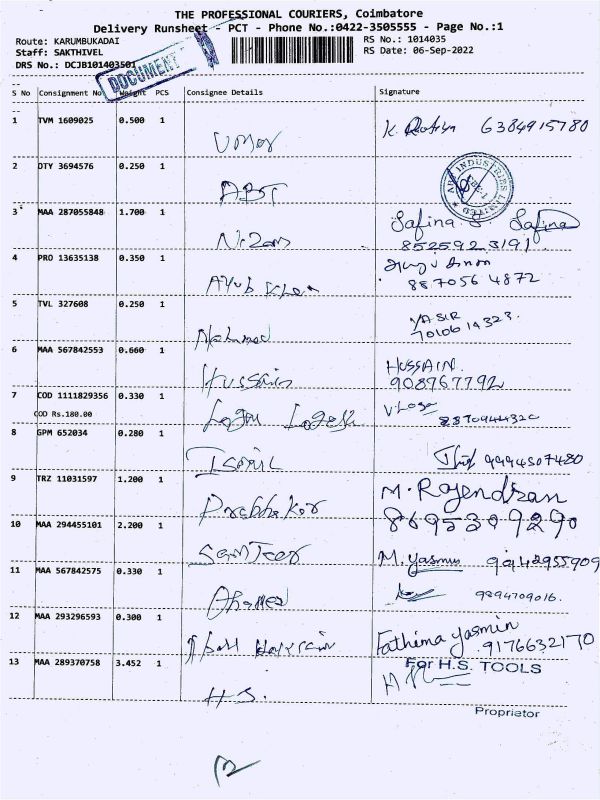 THE PROFESSIONAL COURIERS, Coimbatore
Delivery Runsheet - PCT - Phone No.:0422-3505555 - Page No.:1
Route: KARUMBUKADAI RS No.: 1014035
Staff: SAKTHIVEL RS Date: 06-Sep-2022
DRS No.: DCJB101403501
DOCUMENT
S No Consignment No Weight PCS Consignee Details Signature
1 TVM 1609025 0.500 1 Umar 6384915780
2 DTY 3694576 0.250 1 ABT
INDUSTRIES LIMITED
3 MAA 287055848 1.700 1 Nizam Safina S Safina
8525923191
4 PRO 13635138 0.350 1 Ayub Khan
887056 4872
5 TVL 327608 0.250 1 Mohamed YASIR
6 MAA 567842553 0.660 1 Hussain HUSSAIN.
908767792
7 COD 1111829356 0.330 1 Logu Logesh V. Loge
COD Rs.180.00
8 GPM 652034 0.280 1 Ismail 9994507480
9 TRZ 11031597 1.200 1 Prabhakar M. Rajendran
8695309290
10 MAA 294455101 2.200 1 Sameer M. Yasmin
11 MAA 567842575 0.330 1 Ahamed 9894709016.
12 MAA 293296593 0.300 1 Fathima Yasmin
9176632170
13 MAA 289370758 3.452 1 H.S. For H.S. TOOLS
Proprietor